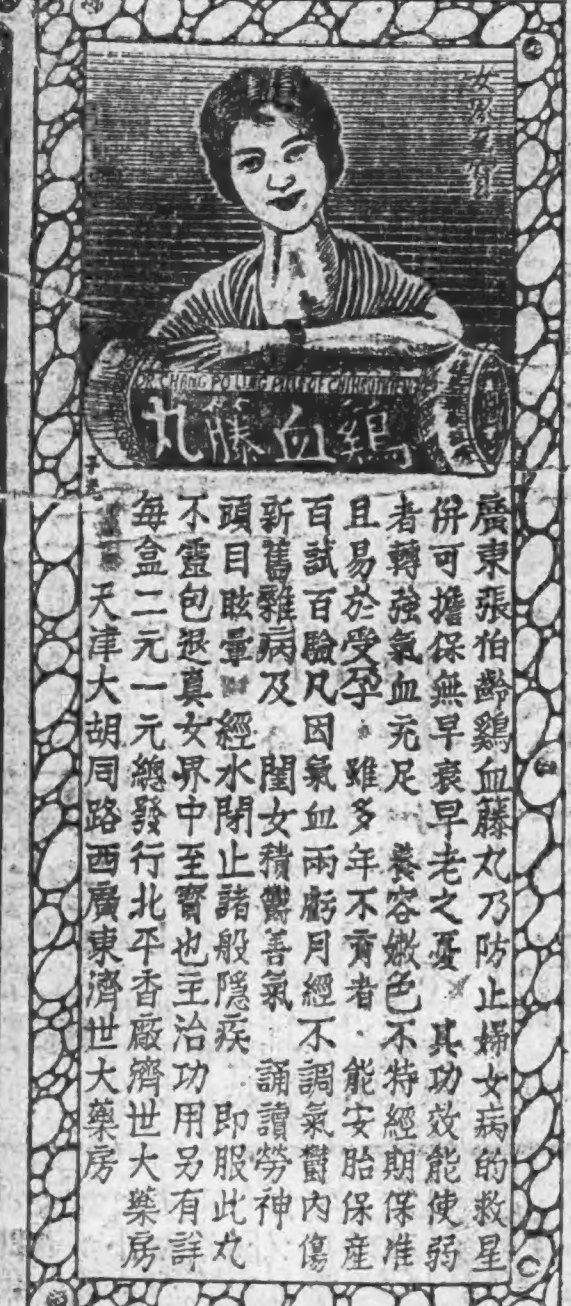 女界至寶
DR. CHANG PO LING PILLS OF
鷄血藤丸
廣東張伯齡鷄血籐丸乃防止婦女病的救星
併可擔保無早衰早老之憂 其功效能使弱
者轉強氣血充足 養容嫩色不特經期保准
且易於受孕 雖多年不育者 能安胎保產
百試百驗凡因氣血兩虧月經不調氣鬱內傷
新舊雜病及 閨女積鬱善氣 誦讀勞神
頭目眩暈 經水閉止諸般隱疾 即服此丸
不靈包退真女界中至寶也主治功用另有詳
每盒二元一元總發行北平香廠濟世大藥房
天津大胡同路西廣東濟世大藥房